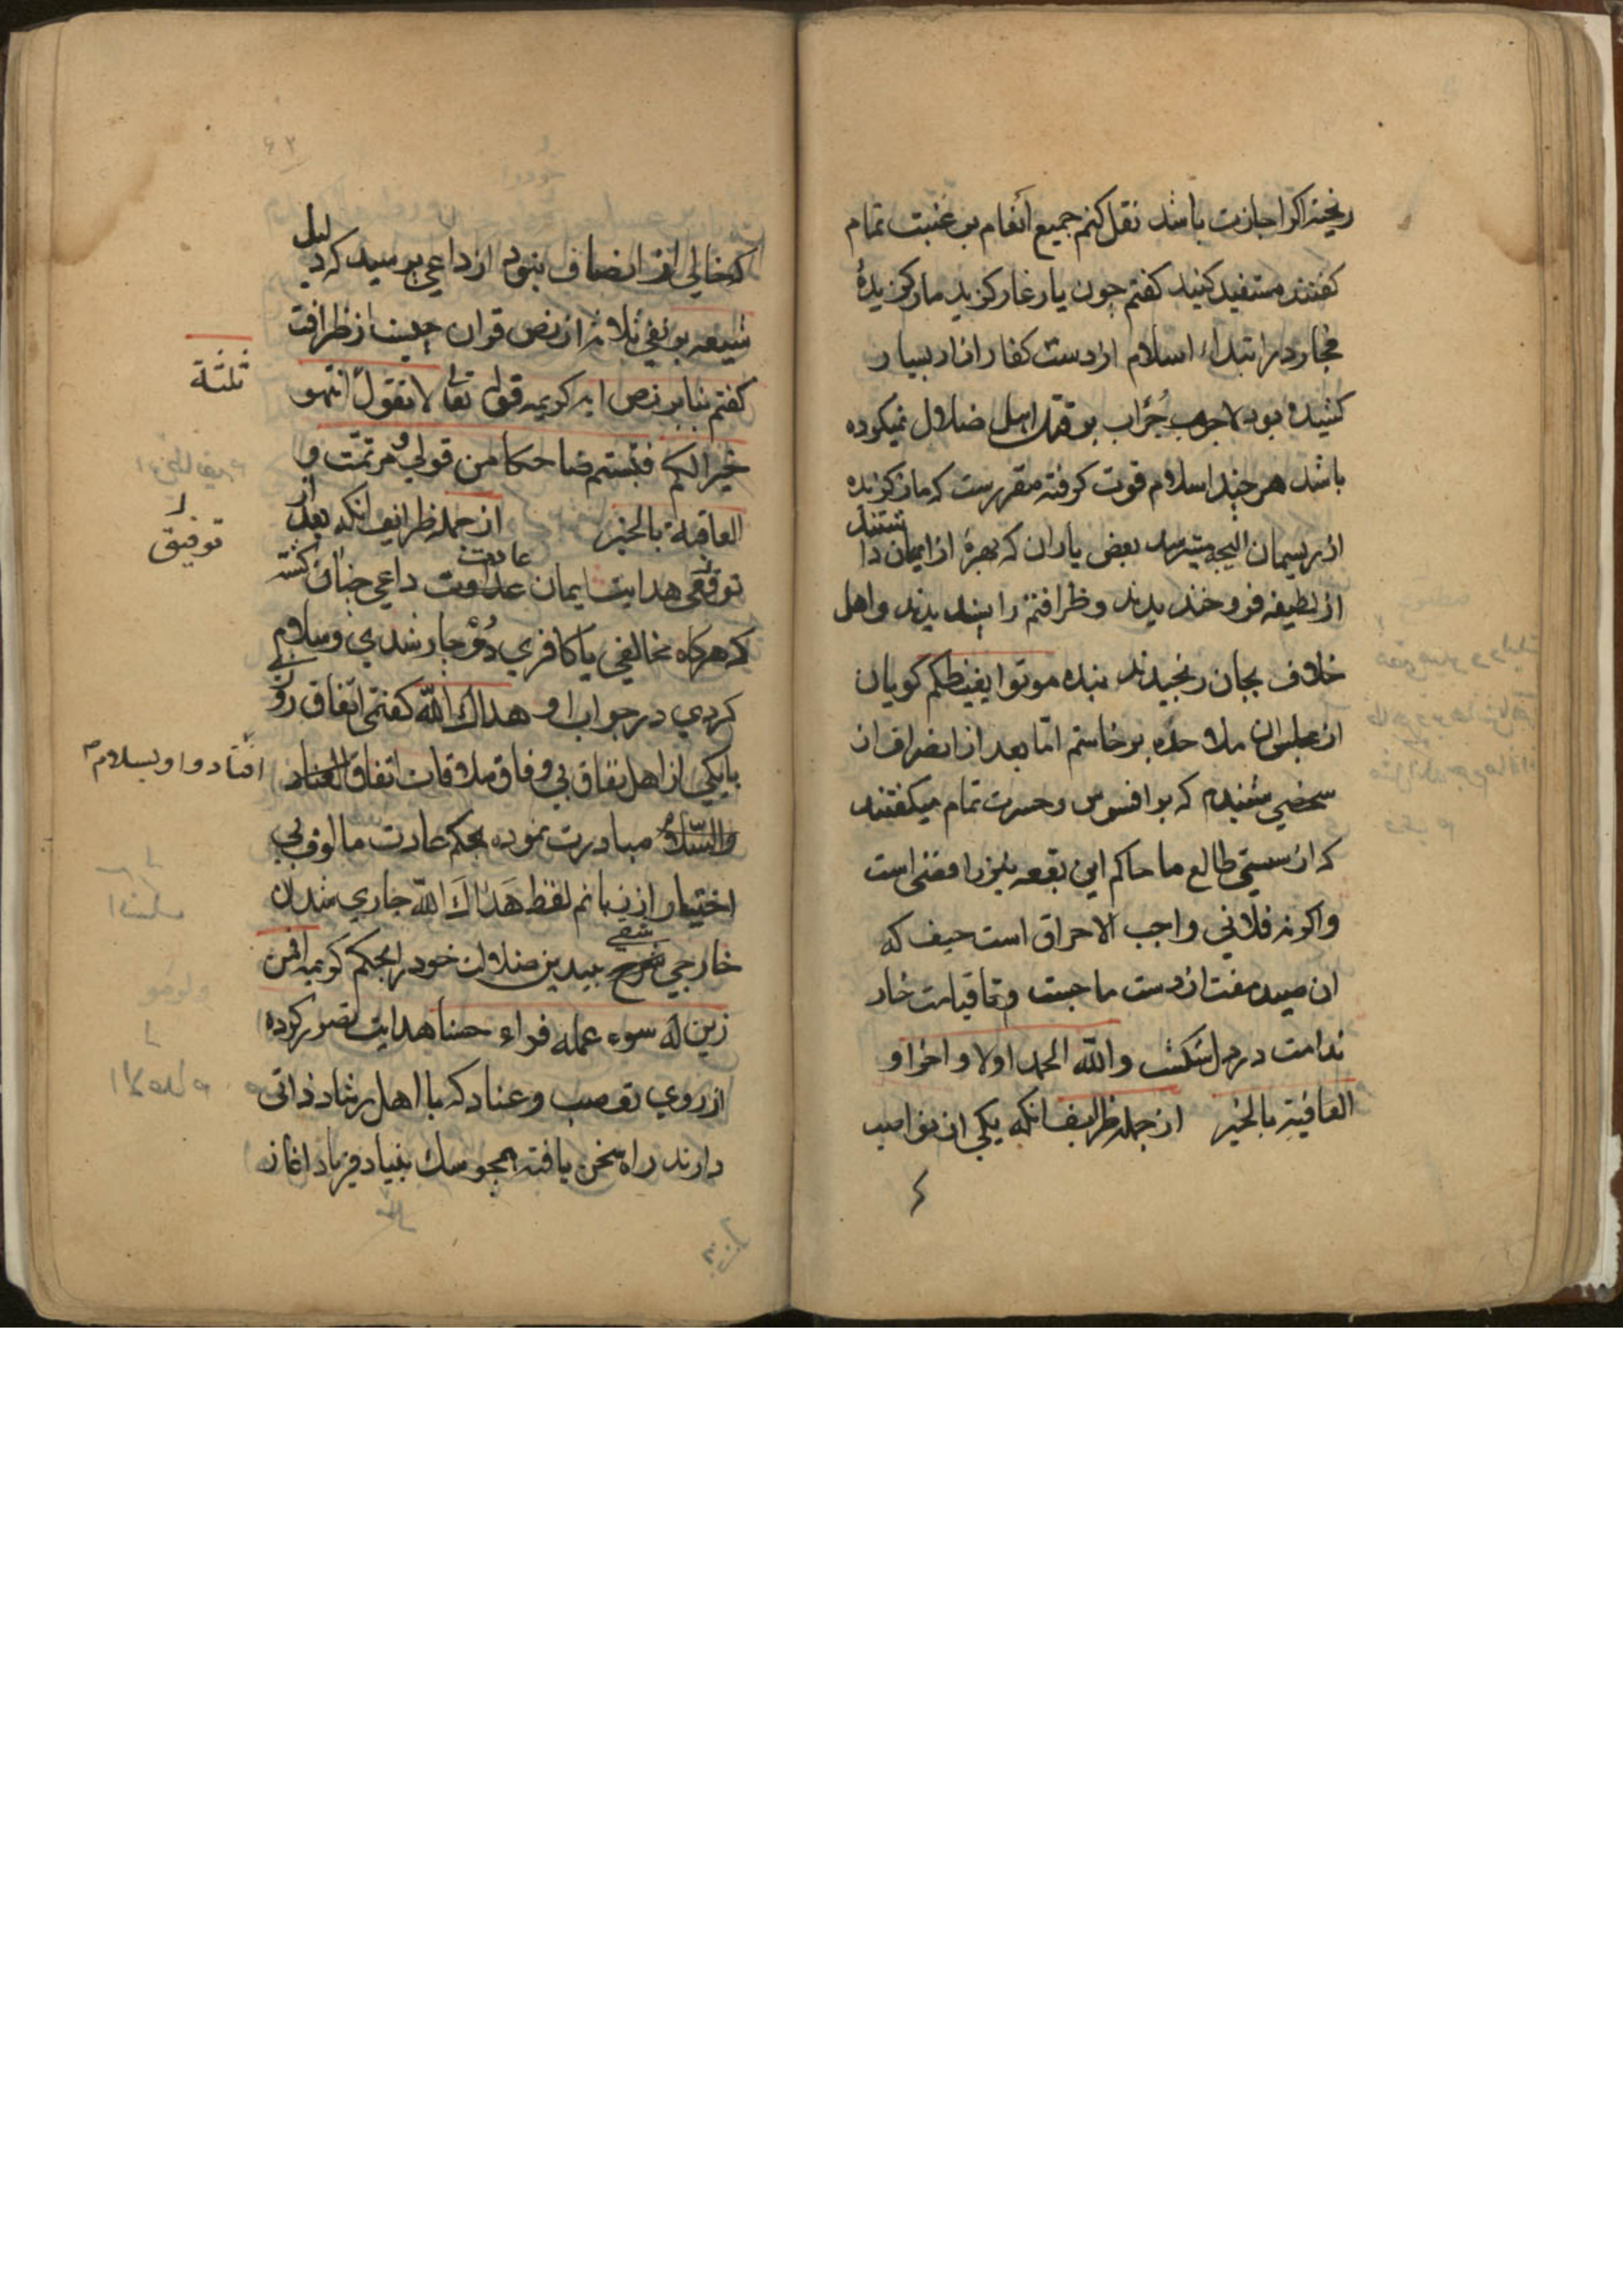 ریخته اکر اجازت باشد نقل کنم جمیع انعام برغبت تمام
کفتند مستفید کنید کفتم چون یار غار کزید مار کزیدهٔ
در ابتداء اسلام از دست کفار ازار بسیار
کشیده بود لاجرم بر قتل اهل ضلال نمیکرده
باشد هر چند اسلام قوت کرفته مقررست که مار کزیده
از ریسمان میترسد بعض یاران که بهرهٔ از ایمان داشتند
از لطیفه فرو خندیدند و ظرافتم را پسندیدند و اهل
خلاف بجان رنجیدند بنده موتوا بغیظکم کویان
از مجلس ان ملاحده برخاستم امّا بعد از انصراف از
شخصی شنیدم که بر افسوس و حسرت تمام میکفتند
که از سستی طالع ما حاکم این بقعه نیز رافضی است
واکرنه فلانی واجب الاحراق است حیف که
ان صید مفت از دست ما جست و تا قیامت خار
ندامت در دل شکست والله الحمد اولا واخرا و
العاقبة بالخیر از جمله ظرایف انکه یکی از نواصب
که خالی از انصاف نبود از داعی پرسید که دلیل
شیعه بر نفی ثلاثه از نص قران چیست از ظرافت
ثلثة
کفتم بنابر نص ایه کریمه قوله تعالی لا تقولوا انتهوا
خیرا لکم فتبسم ضاحکا من قولی و مرّ تمّت و
العاقبة بالخیر از جمله ظرایف انکه بعد از
توفیق
توفیق هدایت ایمان عادت داعی چنان کشته
که هرکاه مخالفی یا کافری دوچار شدی و سلام
کردی در جواب او هداك الله کفتمی اتفاق روزی
با یکی از اهل نفاق بی وفاق ملاقات اتفاق
افتاد و او بسلام
مبادرت نموده بحکم عادت مالوف بی
اختیار از زبانم لفظ هَداكَ الله جاری شد ان
خارجی شقی بیدین ضلالت خود را بحکم کریمه افمن
زین له سوء عمله فراه حسنا هدایت تصور کرده
از روی تعصب و عناد که با اهل رشاد ذاتی
دارند راه سخن یافته همچو سك بنیاد فریاد اغاز